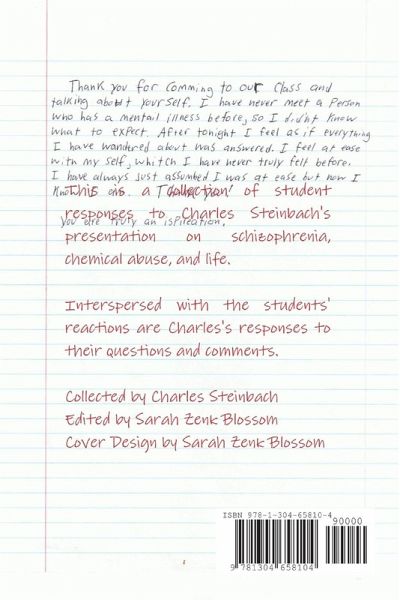 Thank you for comming to our class and
talking about yourself. I have never meet a person
who has a mental illness before, so I didn't know
what to expect. After tonight I feel as if everything
I have wandered about was answered. I feel at ease
with my self, whitch I have never truly felt before.
I have always just assumbed I was at ease but now I
Know I am. Thank you
This is a collection of student
responses to Charles Steinbach's
you are truly an ispiteation.
presentation on schizophrenia,
chemical abuse, and life.
Interspersed with the students'
reactions are Charles's responses to
their questions and comments.
Collected by Charles Steinbach
Edited by Sarah Zenk Blossom
Cover Design by Sarah Zenk Blossom
ISBN 978-1-304-65810-4
90000
9 781304 658104